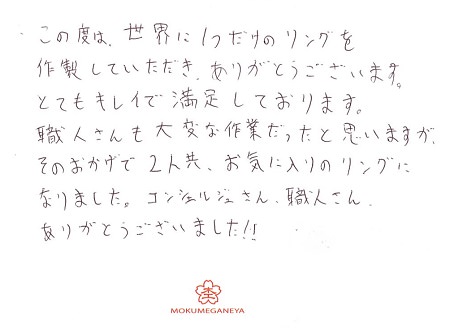 この度は、世界に1つだけのリングを
作製していただき、ありがとうございます。
とてもキレイで満足しております。
職人さんも大変な作業だったと思いますが、
そのおかげで2人共、お気に入りのリングに
なりました。コンシェルジュさん、職人さん、
ありがとうございました!!
杢
MOKUMEGANEYA